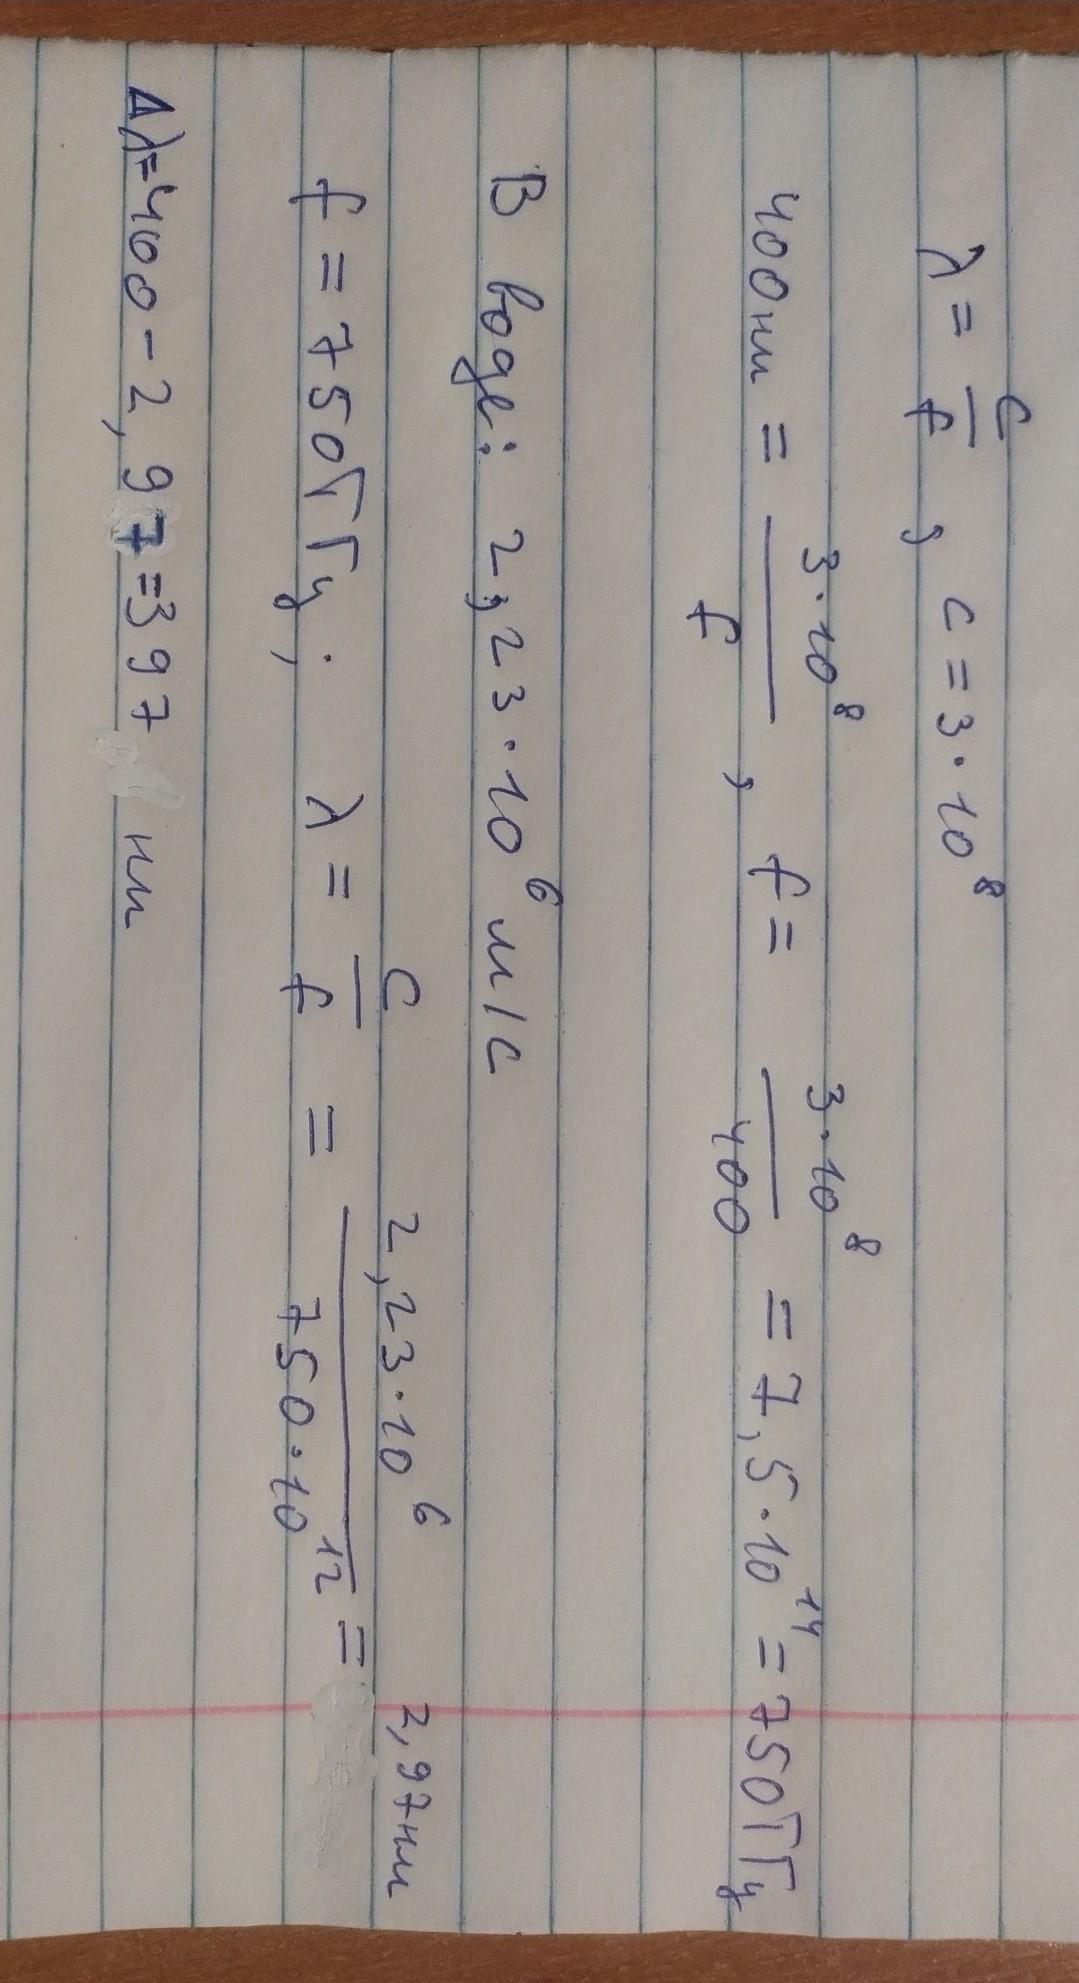 λ = c/f , c = 3·10⁸
400нм = 3·10⁸/f , f = 3·10⁸/400 = 7,5·10¹⁴ = 750ТГц
В воде: 2,23·10⁶ м/с
f = 750ТГц; λ = c/f = 2,23·10⁶/750·10¹² = 2,97нм
Δλ=400-2,97=397 нм